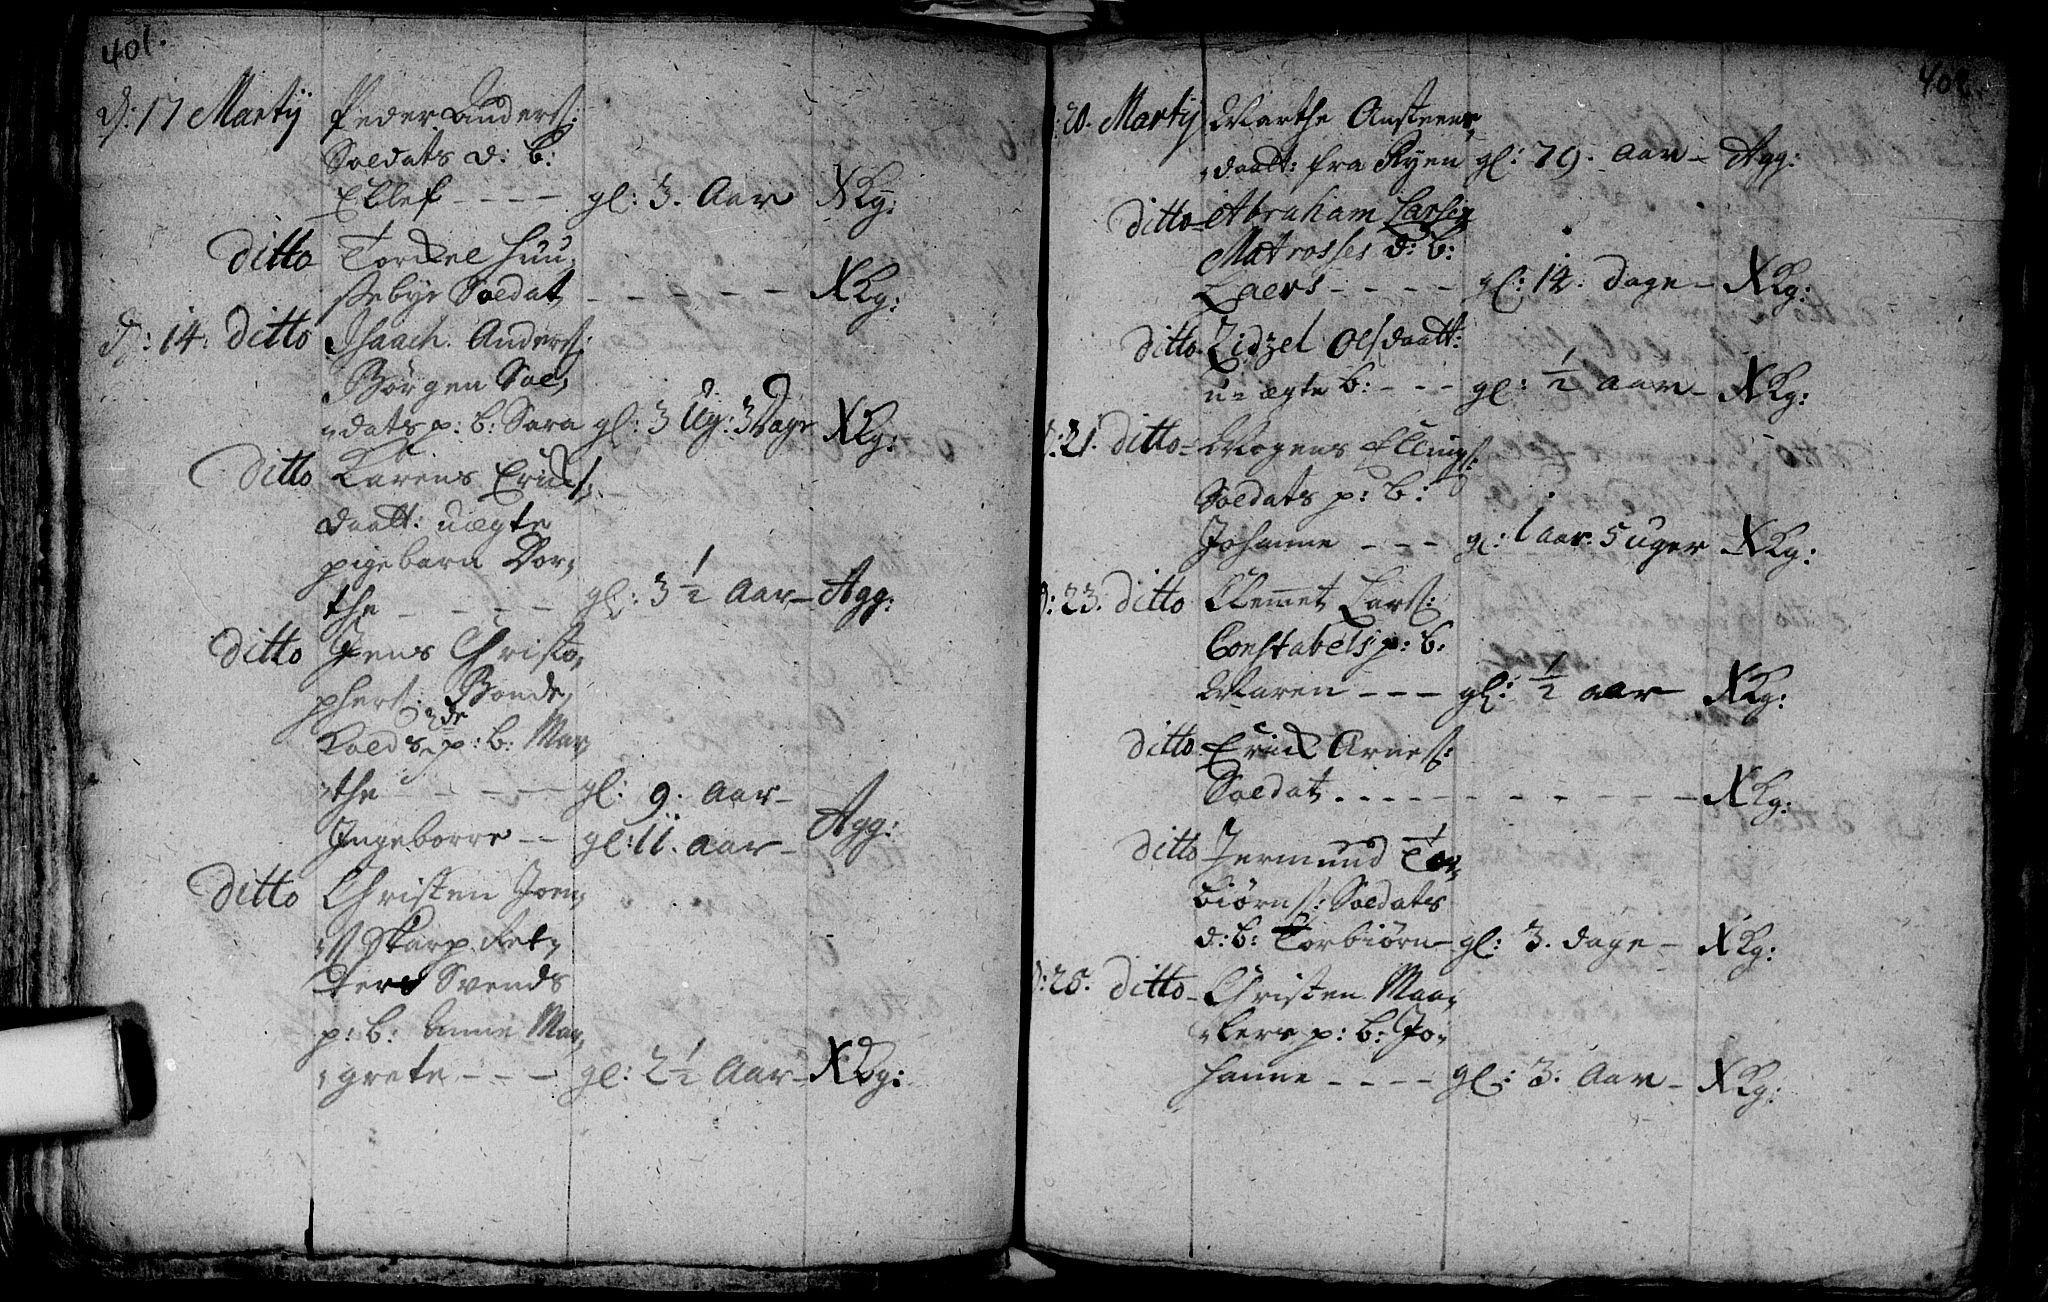 401.
D: 17 Martij Peder Anders:
Soldats d: b:
Ellef - - - - gl: 3. Aar XKg:
ditto Torckel Huu,
sebye Soldat - - - - - XKg:
D: 14. ditto Isaach Anders:
Börgen Sol,
dats p: b: Sara gl: 3 Ug: 3 Dage XKg:
ditto Karens Erichs,
daatt: uægte
pigebarn Dor,
the - - - - gl: 3 1/2 Aar - Agg:
ditto Jens Christo,
phers: Bonde,
Kolds 2de p: b: Mar,
the - - - - gl: 9. Aar -
Ingeborre - - gl: 11. aar - Agg:
ditto Christen Joen,
s: Skarp Ret,
ters Svends
p: b: Anne Mar,
grete - - - gl: 2 1/2 Aar - XKg:
402.
D: 20. Martij Marthe Austens,
daatt: fra Ryen gl: 79. Aar - Agg:
ditto - Abraham Larsen
Matrosses d: b:
Laers - - - - gl: 14. dage - XKg:
ditto Zidzel Olsdaatt:
u=ægte b: - - - gl: 1/2 Aar - XKg:
D: 21. ditto - Mogens Ellings:
Soldats p: b:
Johanne - - - gl: 1 aar. 5 uger - XKg:
D: 23. ditto Clemet Lars:
Constabels p: b:
Maren - - - gl: 1/2 aar XKg:
ditto Erick Arnes:
Soldat - - - - - - - - - - XKg:
ditto Jermund Tor,
biörns: Soldats
d: b: Torbiörn - gl: 3. dage - XKg:
D: 25. ditto - Christen Maa,
lers p: b: Jo,
hanne - - - - gl: 3. Aar - XKg: